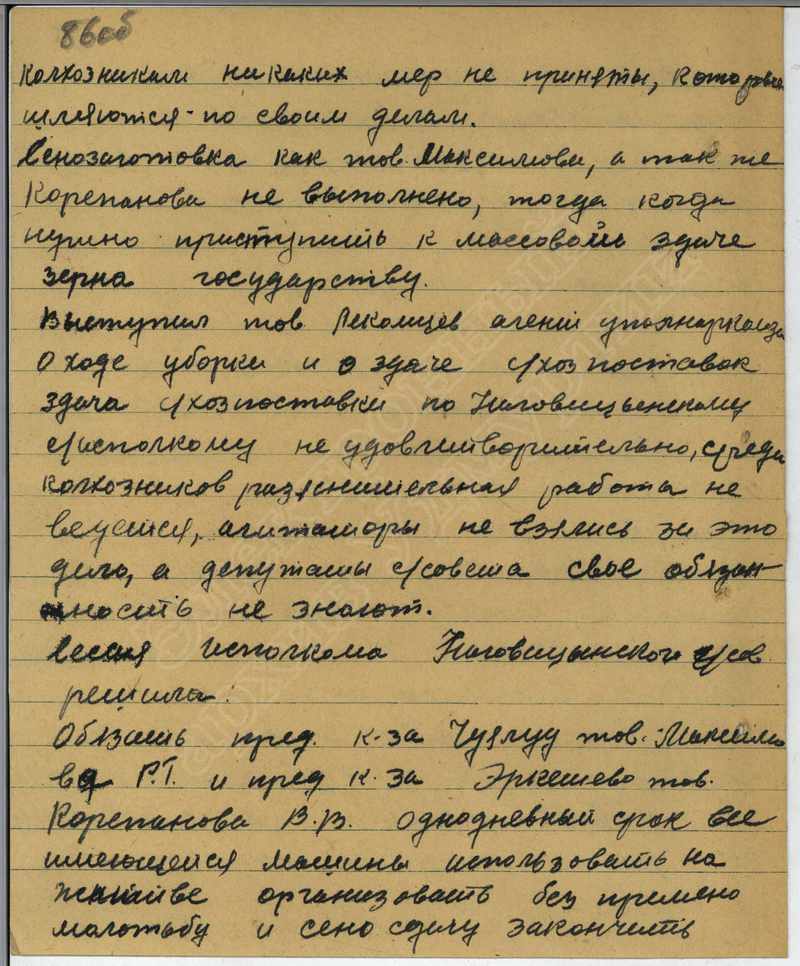 86об
колхозниками никаких мер не приняты, которые
шляются по своим делам.
Сенозаготовка как тов. Максимова, а так же
Корепанова не выполнено, тогда когда
нужно приступить к массовой здаче
зерна государству.
Выступил тов. Лекомцев агент уполнаркомзаг
О ходе уборки и о здаче с/хоз поставок
здача с/хозпоставки по Наговицынскому
с/исполкому не удовлитворительно, среди
колхозников разяснительная работа не
ведется, агитаторы не взялись за это
дело, а депутаты с/совета свое обязан-
ность не знают.
Сессия исполкома Наговицынского с/сов.
решила:
Обязать пред. к-за Чуялуд тов. Максимо
ва Р.Т. и пред к-за Эркешево тов.
Корепанова В.В. однодневный срок все
имеющейся машины использовать на
жнитве организовать без премено
молотьбу и сено сдачу закончить